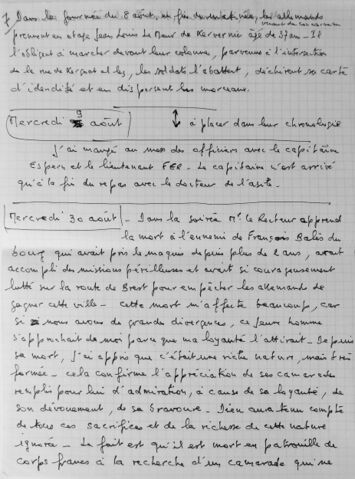 Dans la journée du 8 août, en fin de matinée, les allemands
venant de
prennent en otage Jean Louis Le Meur de Kervernic âgé de 37 ans - Il
l'obligent à marcher devant leur colonne, parvenus à l'intersection
de la rue de et les soldats l'abattent, déchirent sa carte
d'identité et en dispersent les morceaux.
Mercredi 9 août
à placer dans leur chronologie
J'ai mangé au mess des officiers avec le capitaine
Espern et le lieutenant FER - Le capitaine n'est arrivé
qu'à la fin du repas avec le docteur de l'asile.
Mercredi 30 août - Dans la soirée Mr. le Recteur apprend
la mort à l'ennemi de François Balès du
bourg qui avait pris le maquis depuis plus de 2 ans, avait
accompli des missions périlleuses et avait si courageusement
lutté sur la route de Brest pour empêcher les allemands de
gagner cette ville - cette mort m'affecte beaucoup, car
si nous avons de grandes divergences, ce jeune homme
s'approchait de moi parce que ma loyauté l'attirait - Depuis
sa mort, j'ai appris que c'était une riche nature, mais très
fermée - cela confirme l'appréciation de ses camarades
remplis pour lui d'admiration, à cause de sa loyauté, de
son dévouement, de sa bravoure - Dieu aura tenu compte
de tous ces sacrifices et de la richesse de cette nature
ignorée - Le fait est qu'il est mort en patrouille de
corps francs à la recherche d'un camarade qui ne